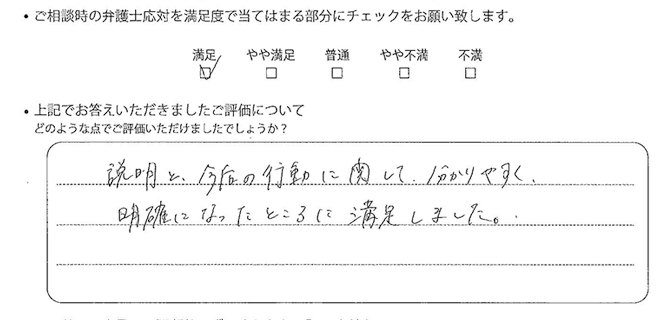 ・ご相談時の弁護士応対を満足度で当てはまる部分にチェックをお願い致します。
満足 やや満足 普通 やや不満 不満
☑ □ □ □ □
・上記でお答えいただきましたご評価について
どのような点でご評価いただけましたでしょうか？
説明と、今后の行動に関して、分かりやすく、
明確になったところに満足しました。